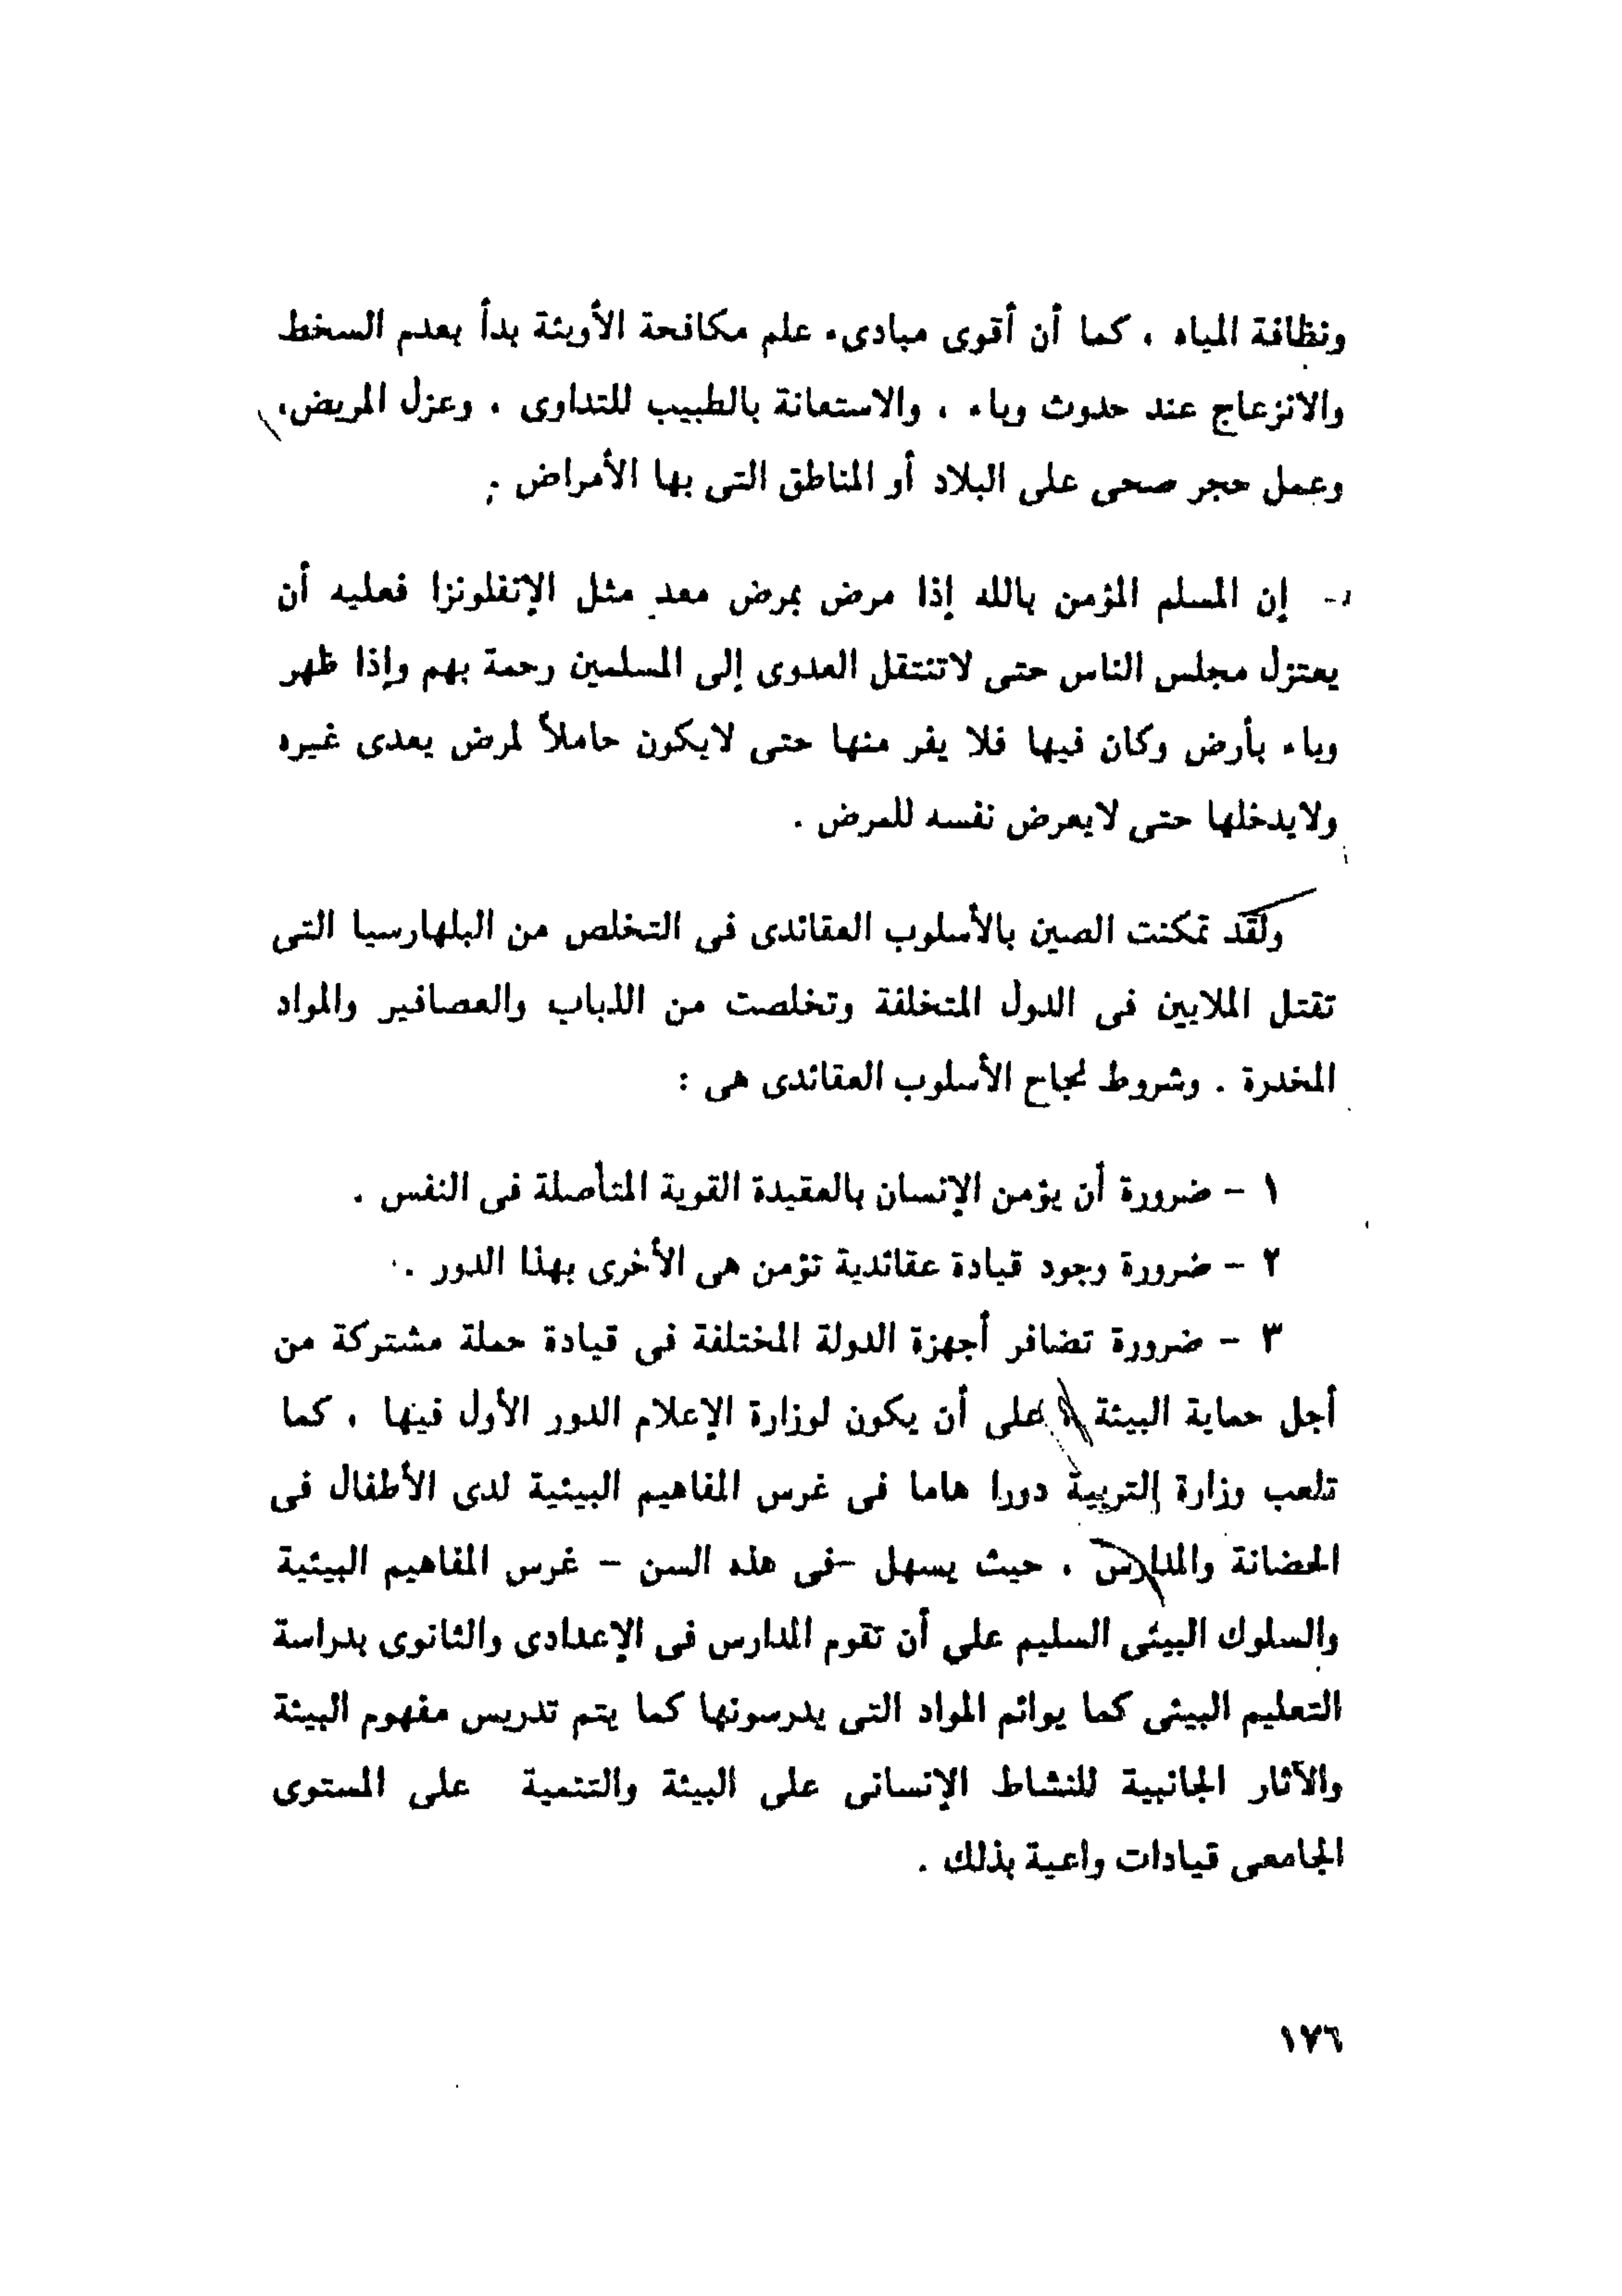 ونظافة المياه ، كما أن أقوى مبادىء علم مكافحة الأوبئة بدأ بعدم السخط
والانزعاج عند حدوث وباء ، والاستعانة بالطبيب للتداوى ، وعزل المريض،
وعمل حجر صحى على البلاد أو المناطق التى بها الأمراض .
- إن المسلم المؤمن بالله إذا مرض بمرض معد مثل الإنفلونزا فعليه أن
يعتزل مجلس الناس حتى لاتنتقل العدوى إلى المسلمين رحمة بهم وإذا ظهر
وباء بأرض وكان فيها فلا يفر منها حتى لايكون حاملاً لمرض يعدى غيره
ولايدخلها حتى لايعرض نفسه للمرض .
ولقد تمكنت الصين بالأسلوب العقائدى فى التخلص من البلهارسيا التى
تقتل الملايين فى الدول المتخلفة وتخلصت من الذباب والعصافير والمواد
المخدرة . وشروط نجاح الأسلوب العقائدى هى :
١ - ضرورة أن يؤمن الإنسان بالعقيدة القوية المتأصلة فى النفس .
٢ - ضرورة وجود قيادة عقائدية تؤمن هى الأخرى بهذا الدور .
٣ - ضرورة تضافر أجهزة الدولة المختلفة فى قيادة حملة مشتركة من
أجل حماية البيئة ، على أن يكون لوزارة الإعلام الدور الأول فيها ، كما
تلعب وزارة التربية دورا هاما فى غرس المفاهيم البيئية لدى الأطفال فى
الحضانة والمدارس ، حيث يسهل -فى هذه السن - غرس المفاهيم البيئية
والسلوك البيئى السليم على أن تقوم المدارس فى الإعدادى والثانوى بدراسة
التعليم البيئى كما يوائم المواد التى يدرسونها كما يتم تدريس مفهوم البيئة
والآثار الجانبية للنشاط الإنسانى على البيئة والتنمية على المستوى
الجامعى قيادات واعية بذلك .
١٧٦